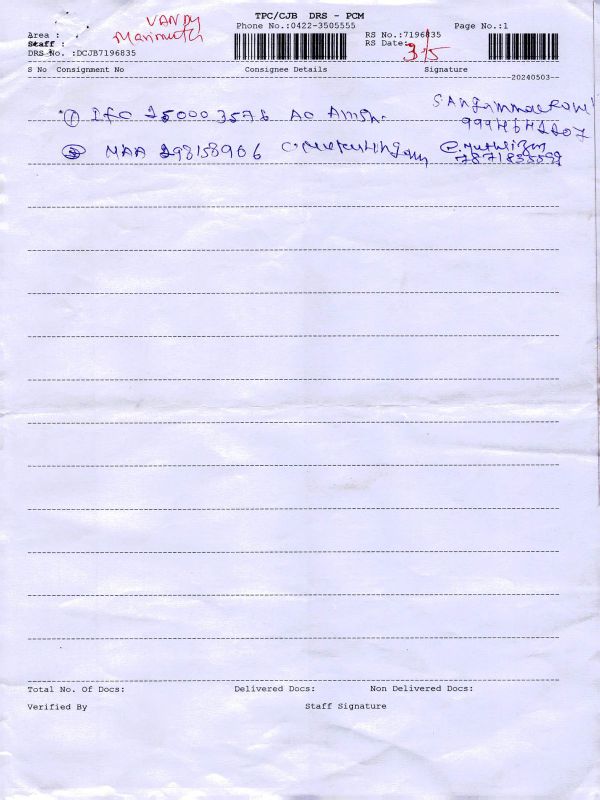 TPC/CJB DRS - PCM
Phone No.:0422-3505555 Page No.:1
Area : VANDY
Staff : Marimuth
RS No.:7196835
RS Date: 3/5
DRS No. :DCJB7196835
S No Consignment No Consignee Details Signature
20240503
1 IFC 250003576 AO
2 MAA 298158906
7871835599
Total No. Of Docs: Delivered Docs: Non Delivered Docs:
Verified By Staff Signature